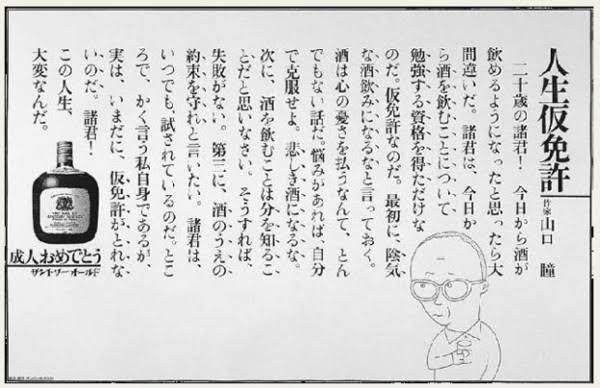 人生仮免許
作家 山口 瞳
二十歳の諸君！ 今日から酒が
飲めるようになったと思ったら大
間違いだ。諸君は、今日か
ら酒を飲むことについて
勉強する資格を得ただけな
のだ。仮免許なのだ。最初に、陰気
な酒飲みになるなと言っておく。
酒は心の憂さを払うなんて、とん
でもない話だ。悩みがあれば自分
で克服せよ。悲しき酒になるな。
次に、酒を飲むことは分を知るこ
とだと思いなさい。そうすれば、
失敗がない。第三に、酒のうえの
約束を守れと言いたい。諸君は、
いつでも、試されているのだ。とこ
ろで、かく言う私自身であるが、
実は、いまだに、仮免許がとれな
いのだ。諸君！
この人生、
大変なんだ。
成人おめでとう
サントリーオールド